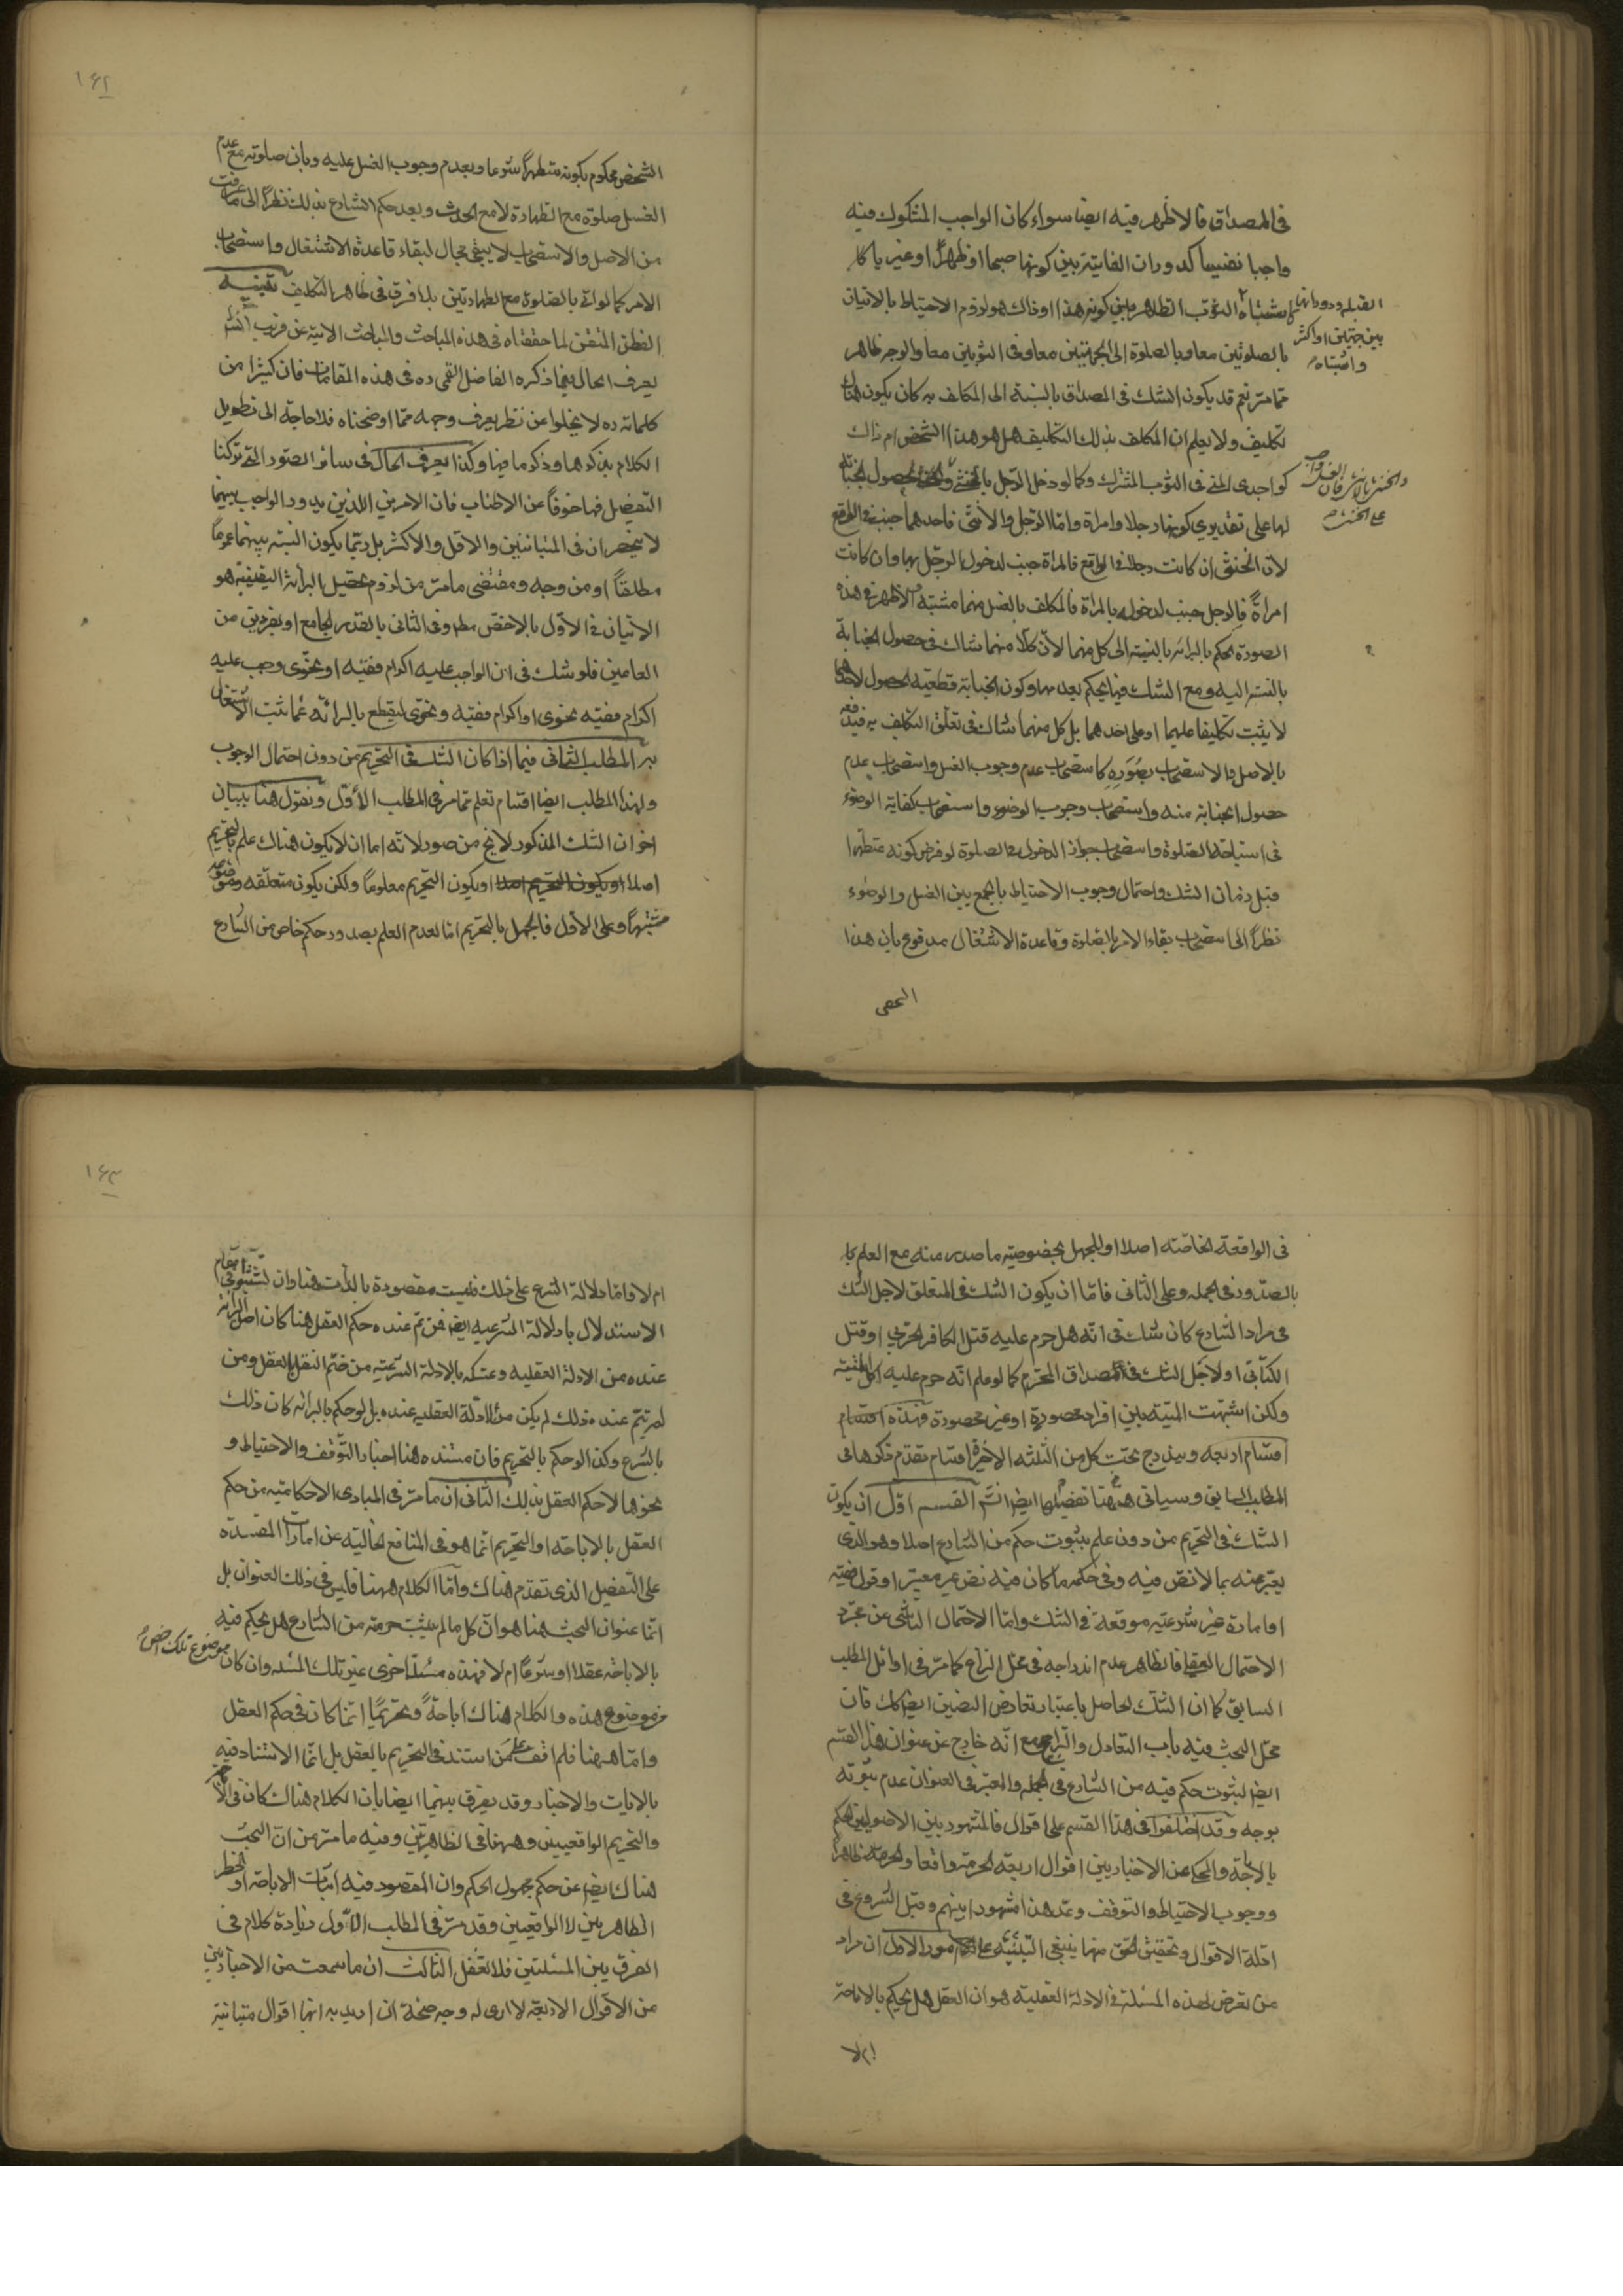 فى المصداق فالاظهر فيه ايضا سواء كان الواجب المشكوك فيه
واجبا نفسيا كدوران الفائتة بين كونها صبحا او ظهرا او غيريا كا
القبلة ودورانها
بين جهتين او اكثر
واشتباه
الثوب الطاهر بين كونه هذا او ذاك هو لزوم الاحتياط بالاتيان
بالصلوتين معا وبالصلوة الى الجهتين معا وفى الثوبين معا والوجه ظاهر
مما مر نعم قد يكون الشك فى المصداق بالنسبة الى المكلف به كان يكون هناك
تكليف ولا يعلم ان المكلف بذلك التكليف هل هو هذا الشخص ام ذاك
كواجدى المنى فى الثوب المشترك وكما لو دخل الرجل بالخنثى
لها على تقديرى كونها رجلا وامراة واما الرجل والانثى فاحدهما جنب فى الواقع
لان الخنثى ان كانت رجلا فى الواقع فالمراة جنب لدخول الرجل بها وان كانت
امراةً فالرجل جنب لدخوله بالمراة فالمكلف بالغسل منهما مشتبه الاظهر فى هذه
الصورة الحكم بالبرائة بالنسبة الى كل منهما لان كلا منهما شاك فى حصول الجنابة
بالنسبة اليه ومع الشك فيها يحكم بعدمها وكون الجنابة قطعية الحصول لاحدهما
لا يثبت تكليفا عليهما او على احدهما بل كل منهما شاك فى تعلق التكليف به فيدفعه
بالاصل والاستصحاب بصوره كاستصحاب عدم وجوب الغسل واستصحاب عدم
حصول الجنابة منه واستصحاب وجوب الوضوء واستصحاب كفاية الوضوء
فى استباحة الصلوة واستصحاب جواز الدخول فى الصلوة لو فرض كونه متطهرا
قبل زمان الشك واحتمال وجوب الاحتياط بالجمع بين الغسل والوضوء
نظراً الى استصحاب بقاء الامر بالصلوة وقاعدة الاشتغال مدفوع بان هذا
١٦٢
الشخص محكوم بكونه متطهراً شرعا وبعدم وجوب الغسل عليه وبان صلوته مع عدم
الغسل صلوة مع الطهارة لا مع الحدث وبعد حكم الشارع بذلك نظراً الى ما عرفت
من الاصل والاستصحاب لا يبقى مجال لبقاء قاعدة الاشتغال واستصحاب
الامر كما لو اتى بالصلوة مع الطهارتين بلا فرق فى ظاهر التكليف تنبيه
الفطن المتقن لما حققناه فى هذه المباحث والمباحث الاتية عن قريب انشاء الله
يعرف الحال فيما ذكره الفاضل القمى ره فى هذه المقامات فان كثيرا من
كلماته ره لا يخلوا عن نظر يعرف وجهه مما اوضحناه فلا حاجة الى تطويل
الكلام بذكرها وذكر ما فيها وكذا يعرف الحال فى سائر الصور التى تركنا
التفصيل فيها خوفاً عن الاطناب فان الامرين اللذين يدور الواجب بينهما
لا ينحصران فى المتباينين والاقل والاكثر بل ربما يكون النسبة بينهما عموماً
مطلقاً او من وجه ومقتضى ما مر من لزوم تحصيل البرائة اليقينية هو
الاتيان فى الاول بالاخص مط وفى الثانى بالقدر الجامع او بفردين من
العامين فلو شك فى ان الواجب عليه اكرام فقيه او نحوى وجب عليه
اكرام فقيه نحوى او اكرام فقيه ونحوى ليقطع بالبرائة عما ثبت الاشتغال
به المطلب الثانى فيما اذا كان الشك فى التحريم من دون احتمال الوجوب
ولهذا المطلب ايضا اقسام تعلم مما مر فى المطلب الاول ونقول هنا ببيان
اخر ان الشك المذكور لا يخ من صور لانه اما ان لا يكون هناك علم بالتحريم
اصلا او يكون التحريم معلوما ولكن يكون متعلقه وموضوعه
مشتبهاً وعلى الاول فالجهل بالتحريم اما لعدم العلم بصدور حكم خاص من الشارع
فى الواقعة الخاصة اصلا او للجهل بخصوصية ما صدر منه مع العلم با
بالصدور فى الجملة وعلى الثانى فاما ان يكون الشك فى المتعلق لاجل الشك
فى مراد الشارع كان شك فى انه هل حرم عليه قتل الكافر الحربى او قتل
الكتابى او لاجل الشك فى المصداق المحرم كما لو علم انه حرم عليه اكل الميتة
ولكن اشتبهت الميتة بين افراد محصورة او غير محصورة فهذه اقسام
اقسام اربعة ويندرج تحت كل من الثلثة الاخيرة اقسام تقدم ذكرها فى
المطلب السابق وسياتى ههنا تفصيلها ايض انشاء الله القسم الاول ان يكون
الشك فى التحريم من دون علم بثبوت حكم من الشارع اصلا وهو الذى
يعبر عنه بما لا نص فيه وفى حكمه ما كان فيه نص غير معتبر او قول فقيه
او امارة غير شرعية موقعة فى الشك واما الاحتمال الناشى عن مجرد
الاحتمال العقلى فالظاهر عدم اندراجه فى محل النزاع كما مر فى اوائل المطلب
السابق كما ان الشك الحاصل باعتبار تعارض النصين ايض كك فان
محل البحث فيه باب التعادل والتراجيح مع انه خارج عن عنوان هذا القسم
ايض لثبوت حكم فيه من الشارع فى الجملة والمعتبر فى العنوان عدم ثبوته
بوجه وقد اختلفوا فى هذا القسم على اقوال فالمشهور بين الاصوليين الحكم
بالاباحة والمحكى عن الاخباريين اقوال اربعة الحرمة واقعا والحرمة ظاهراً
ووجوب الاحتياط والتوقف وعد هذا مشهورا بينهم وقبل الشروع فى
ادلة الاقوال وتحقيق الحق منها ينبغى التنبيه على امور الاول ان مراد
من تعرض لهذه المسئلة فى الادلة العقلية هو ان العقل هل يحكم بالاباحة
ام لا
١٦٣
ام لا واما دلالة الشرع على ذلك فليست مقصودة بالذات هنا وان
الاستدلال بادلالة الشرعيه ايض فمن تم عنده حكم العقل هنا كان اصل البرائة
عنده من الادلة العقلية وتمسكه بالادلة الشرعية من ضم النقل بالعقل ومن
لم يتم عنده ذلك لم يكن من الادلة العقليه عنده بل لو حكم بالبرائه كان ذلك
بالشرع وكذا لو حكم بالتحريم فان مستنده هنا اخبار التوقف والاحتياط و
نحوها لا حكم العقل بذلك الثانى ان ما مر فى المبادى الاحكامية من حكم
العقل بالاباحة او التحريم انما هو فى المنافع الخالية عن امارات المفسدة
على التفصيل الذى تقدم هناك واما الكلام ههنا فليس فى ذلك العنوان بل
انما عنوان البحث هنا هو ان كل ما لم يثبت حرمته من الشارع هل يحكم فيه
بالاباحة عقلا او شرعاً ام لا فهذه مسئلة اخرى غير تلك المسئله وان كان موضوع تلك اخص
من موضوع هذه والكلام هناك اباحةً وتحريمًا انما كان فى حكم العقل
واما ههنا فلم اقف على من استند فى التحريم بالعقل بل انما الاستناد فيه
بالايات والاخبار وقد يفرق بينهما ايضا بان الكلام هناك كان فى
والتحريم الواقعيين وههنا فى الظاهريين وفيه ما مر من ان البحث
هناك ايض عن حكم مجهول الحكم وان المقصود فيه اثبات الاباحة او الحظر
الظاهريين لا الواقعيين وقد مر فى المطلب الاول زيادة كلام فى
الفرق بين المسئلتين فلا تغفل الثالث ان ما سمعت من الاخباريين
من الاقوال الاربعة لا ارى له وجه صحة ان اريد به انها اقوال متباينة